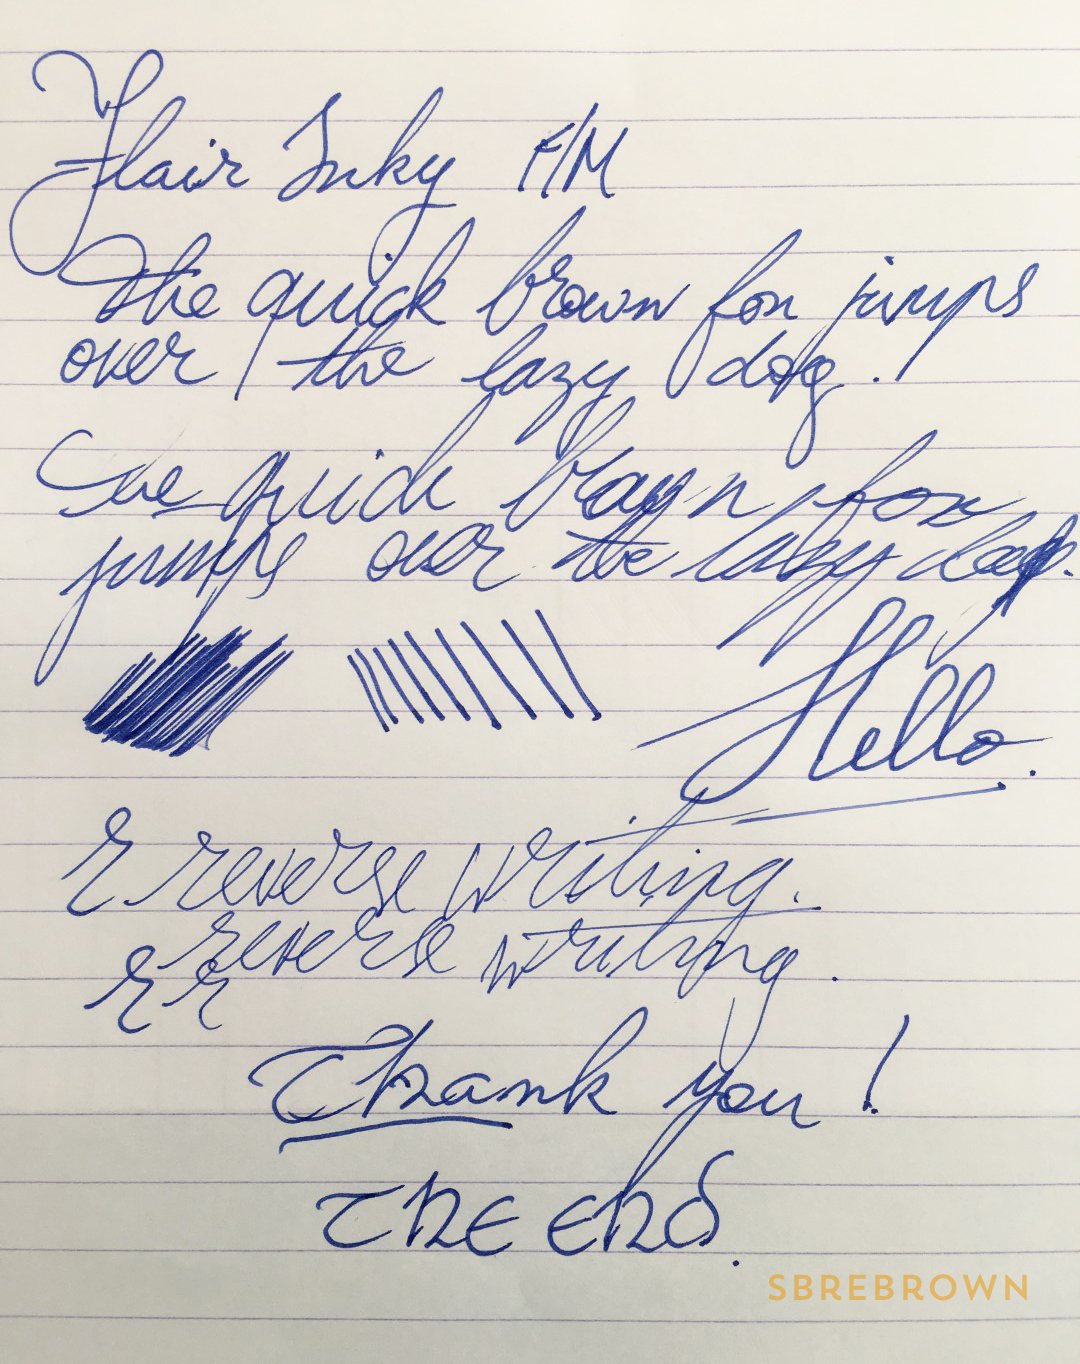 Flair Inky F/M
The quick brown fox jumps
over the lazy dog.!
The quick brown fox
jumps over the lazy dog.
Hello.
r reverse writing.
reverse writing.
r r
Thank you!
The End.
SBREBROWN